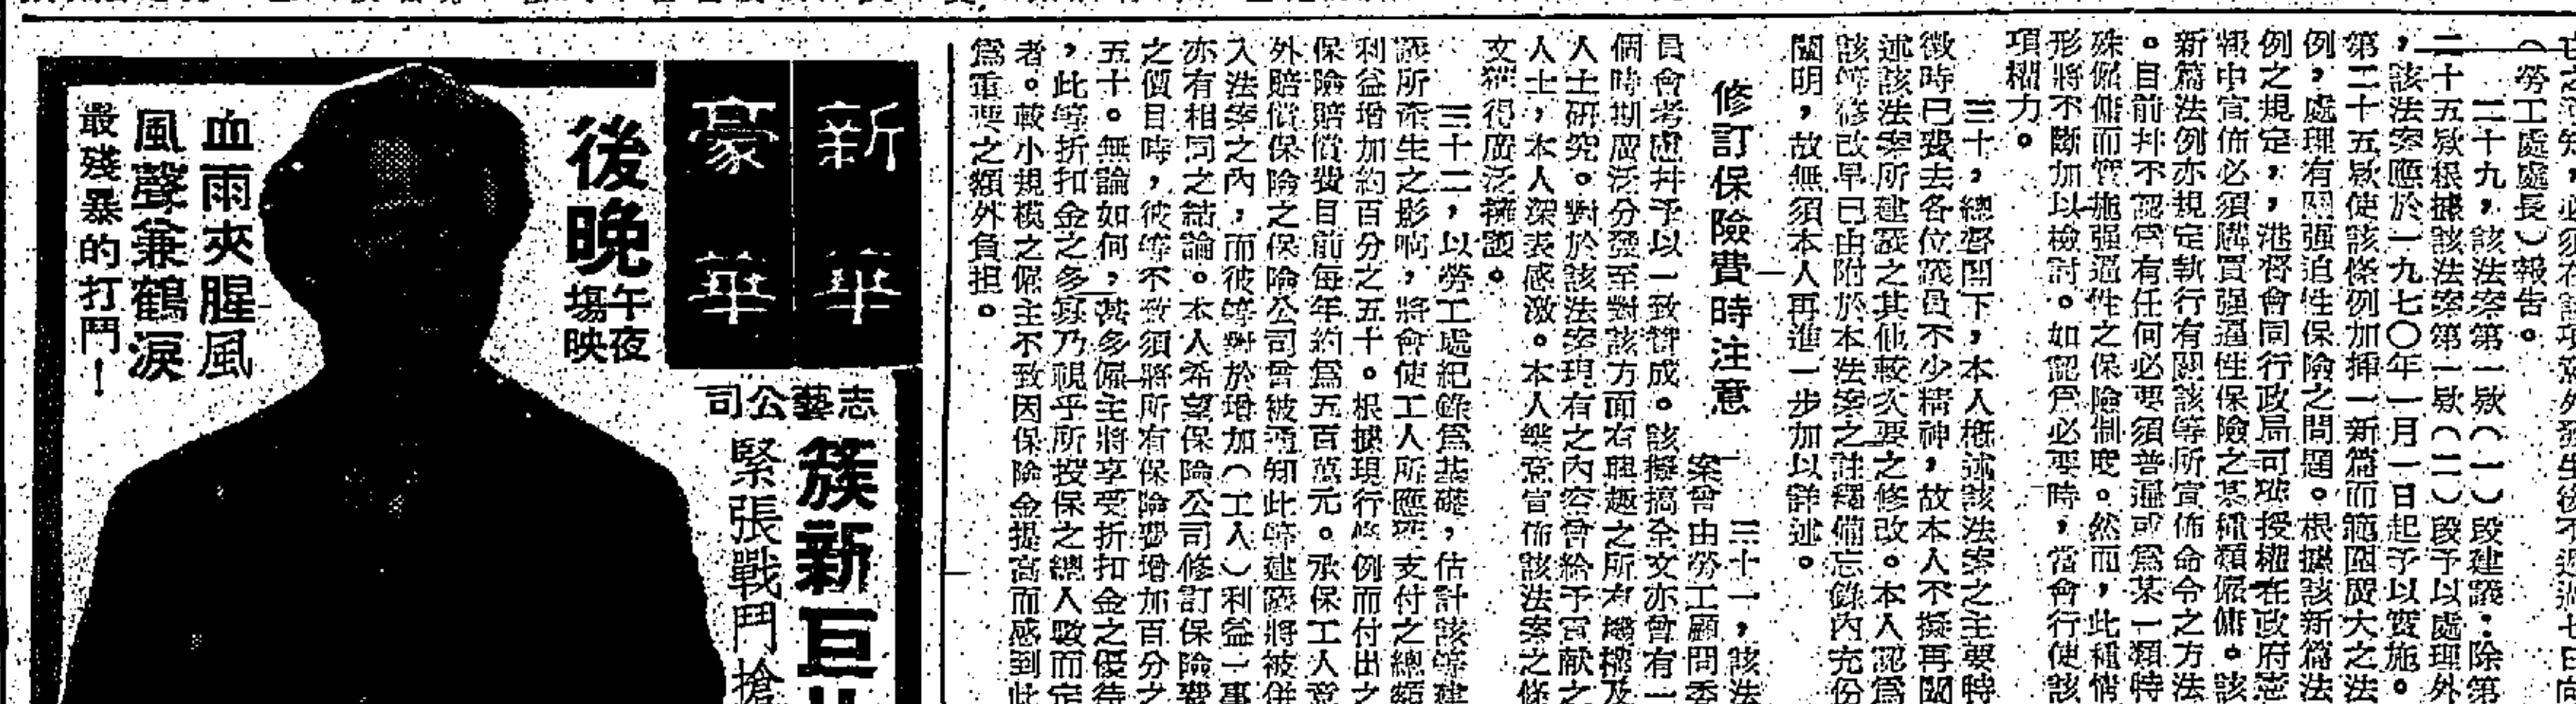 （勞工處處長）報告。
二十九，該法案第一欵（一）段建議：除第
二十五欵根據該法案第一欵（二）段予以處理外
，該法案應於一九七〇年一月一日起予以實施。
第二十五欵使該條例加揷一新篇而範圍廣大之法
例，處理有關强迫性保險之問題。根據該新篇法
例之規定，，港督會同行政局可獲授權在政府憲
報中宣佈必須購買强逼性保險之某種類僱傭。該
新篇法例亦規定執行有關該等所宣佈命令之方法
。目前幷不認爲有任何必要須普遍或爲某一類特
殊僱傭而實施强逼性之保險制度。然而，此種情
形將不斷加以檢討。如認爲必要時，當會行使該
項權力。
三十，總督閣下，本人槪述該法案之主要時
徵時已費去各位議員不少精神，故本人不擬再闡
述該法案所建議之其他較次要之修改。本人認爲
該等修改早已由附於本法案之註釋備忘錄內充份
闡明，故無須本人再進一步加以詳述。
修訂保險費時注意
三十一，該法
案曾由勞工顧問委
員會考慮幷予以一致贊成。該擬搞全文亦曾有一
個時期廣泛分發至對該方面有興趣之所有機構及
人士研究。對於該法案現有之內容曾給予貢献之
人士，本人深表感激。本人樂意宣佈該法案之條
文獲得廣泛擁護。
三十二，以勞工處紀錄爲基礎，估計該等建
議所產生之影响，將會使工人所應獲支付之總額
利益增加約百分之五十。根據現行條例而付出之
保險賠償費目前每年約爲五百萬元。承保工人意
外賠償保險之保險公司曾被通知此等建議將被併
入法案之內，而彼等對於增加（工人）利益一事
亦有相同之結論。本人希望保險公司修訂保險費
之價目時，彼等不致須將所有保險費增加百分之
五十。無論如何，甚多僱主將享受折扣金之優待
，此等折扣金之多寡乃視乎所投保之總人數而定
者。較小規模之僱主不致因保險金提高而感到此
爲重要之額外負担。
新華
豪華
後晚
午夜
塲映
志藝公司
簇新巨
緊張戰鬥搶
血雨夾腥風
風聲兼鶴淚
最殘暴的打鬥！